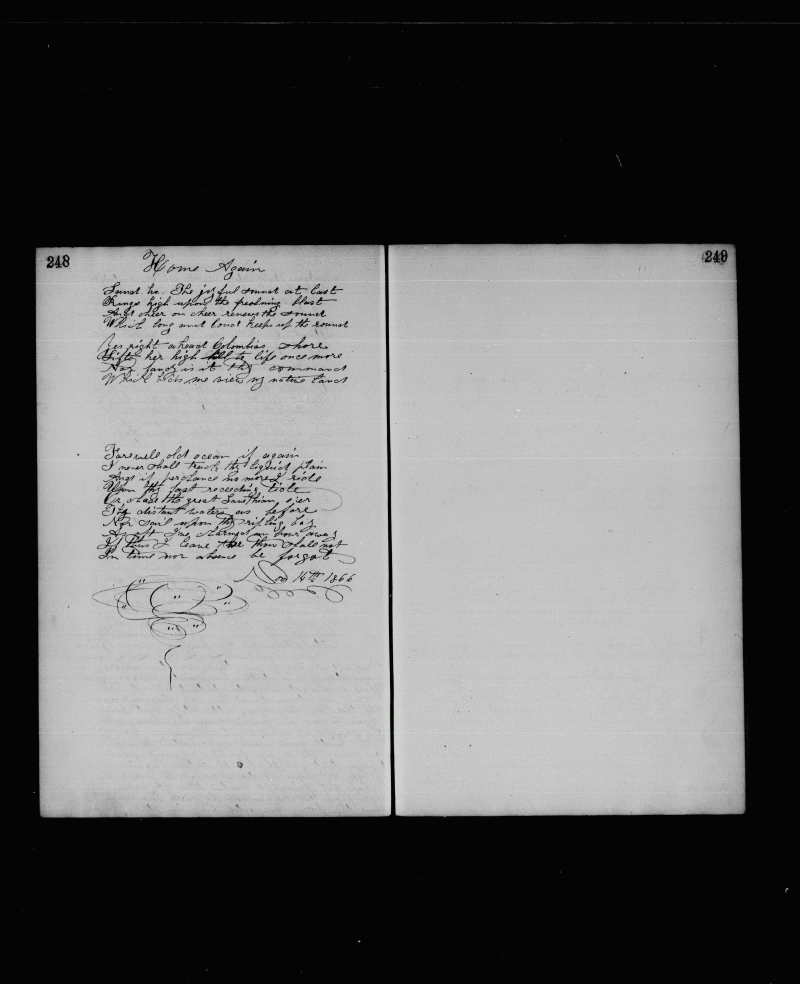 248
Home Again
Land ho. The joyful sound at last
Rings high upon the freshning blast
And cheer on cheer renews the sound
Which long and loud keeps up the round
Yes right ahead Colombias shore
Lifts her high hill to life once more
Nor fancy is it thy command
Which bids me view my native land
Farewell old ocean if again
I never shall track thy liquid plain
And if perchance no more I ride
Upon thy fast receeding tide
Or chase the great Leviathan oer
Thy distant waters as before
Nor sail upon thy rifling bay
As oft Ive an hour away
If thus I leave thee thou shall not
In time nor absence be forgot
Nov 14th 1866
249